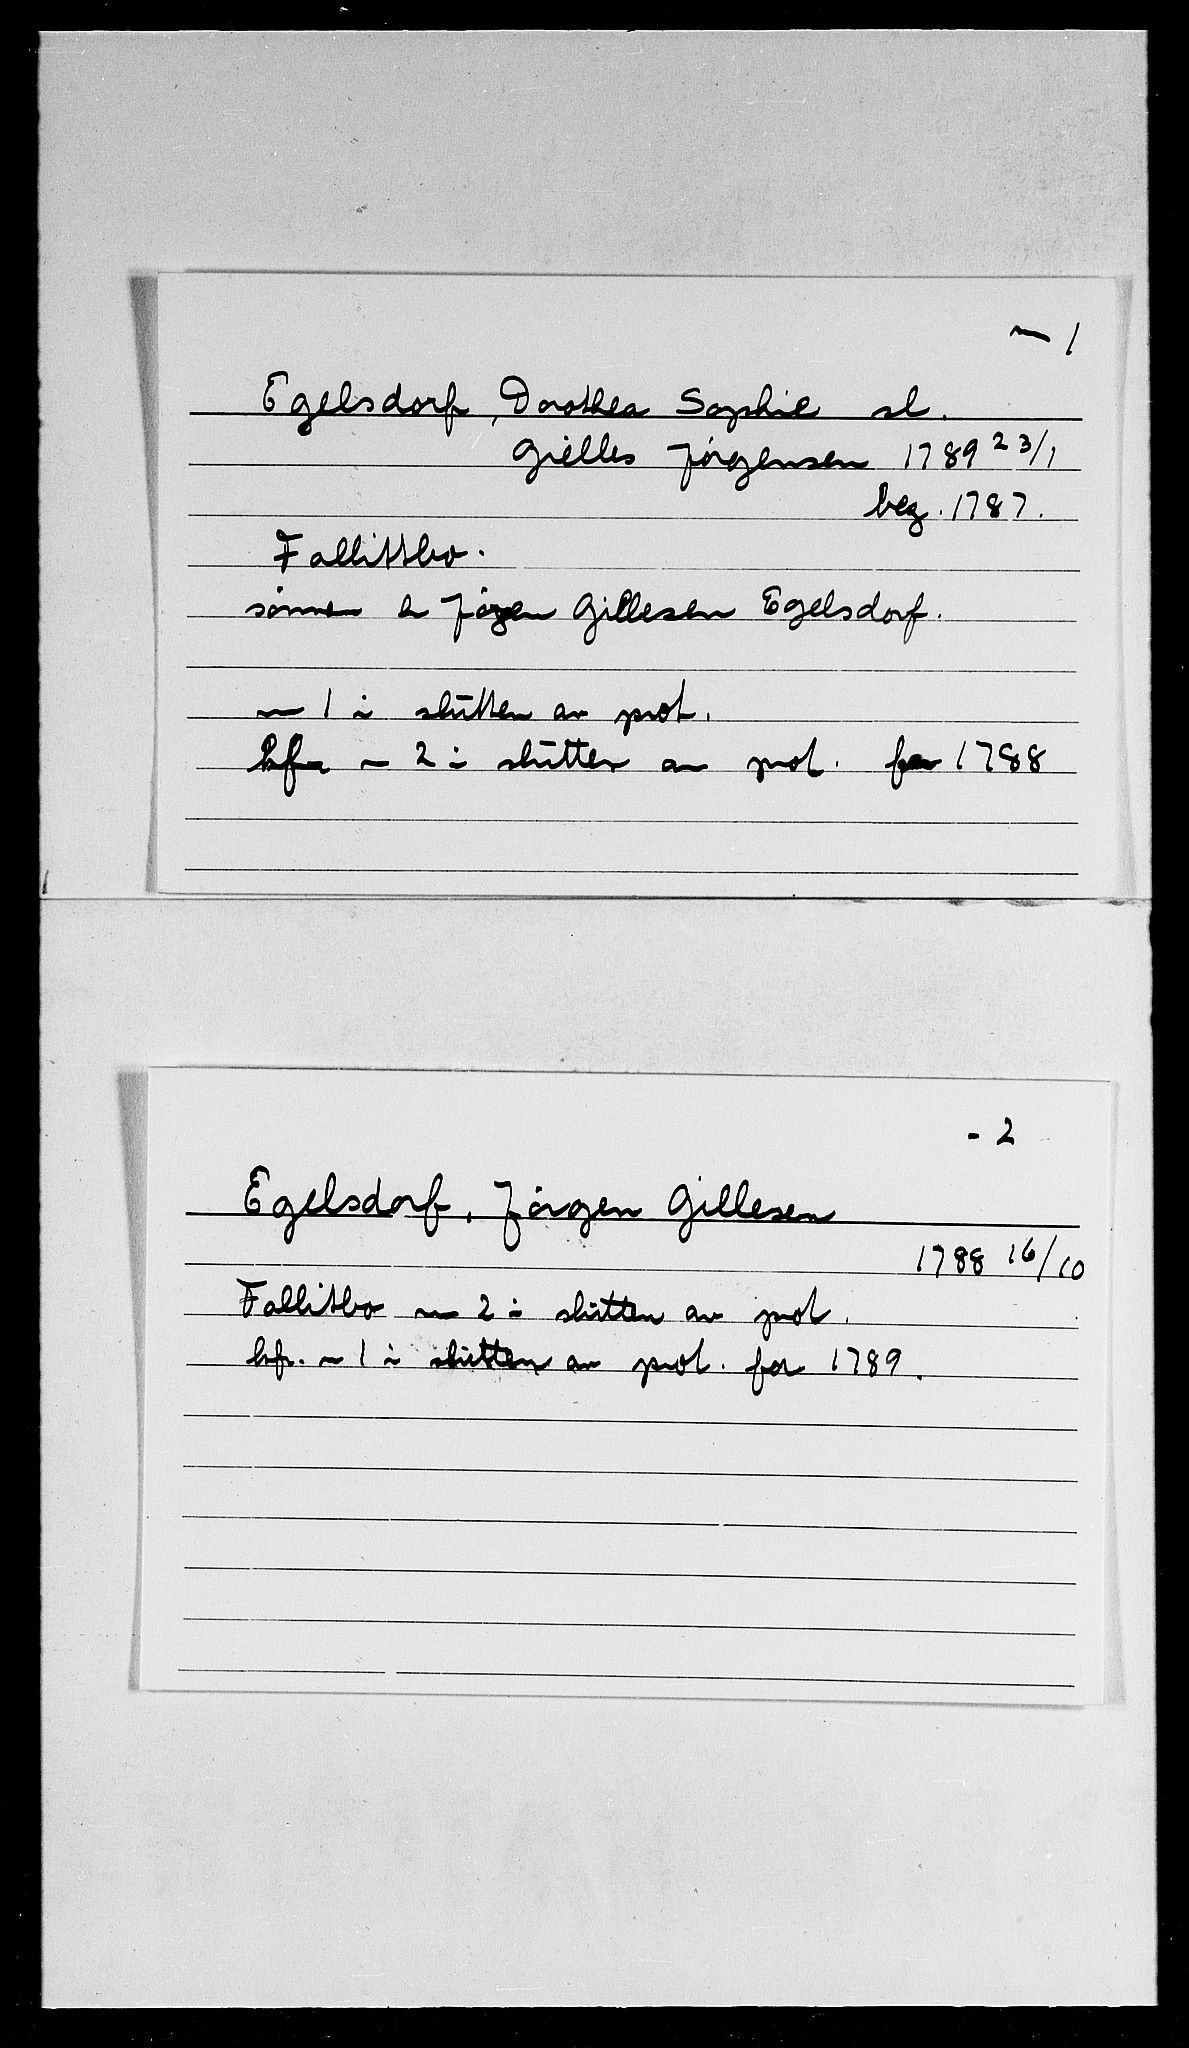 ~ 1
Egelsdorf, Dorothea Sophie sl.
Gielles Jörgensen 1789 23/1
beg. 1787.
Fallittbo.
sønnen er Jörgen Gillesen Egelsdorf.
~ 1 i slutten av prot.
kfr ~ 2 i slutten av prot. for 1788
- 2
Egelsdorf, Jörgen Gillesen
1788 16/10
Fallitbo ~ 2 i slutten av prot.
kfr. ~ 1 i slutten av prot. for 1789.